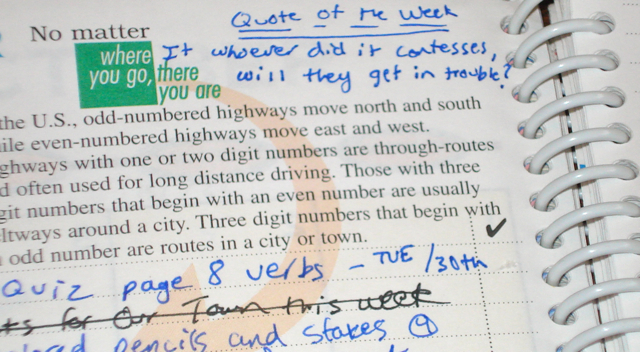 Quote of the Week
No matter
where
you go, there
you are
It whoever did it confesses,
will they get in trouble?
the U.S., odd-numbered highways move north and south
ile even-numbered highways move east and west.
ghways with one or two digit numbers are through-routes
d often used for long distance driving. Those with three
git numbers that begin with an even number are usually
ltways around a city. Three digit numbers that begin with
odd number are routes in a city or town.
Quiz page 8 verbs - TUE /30th
ts for Our Town this week
ored pencils and stakes